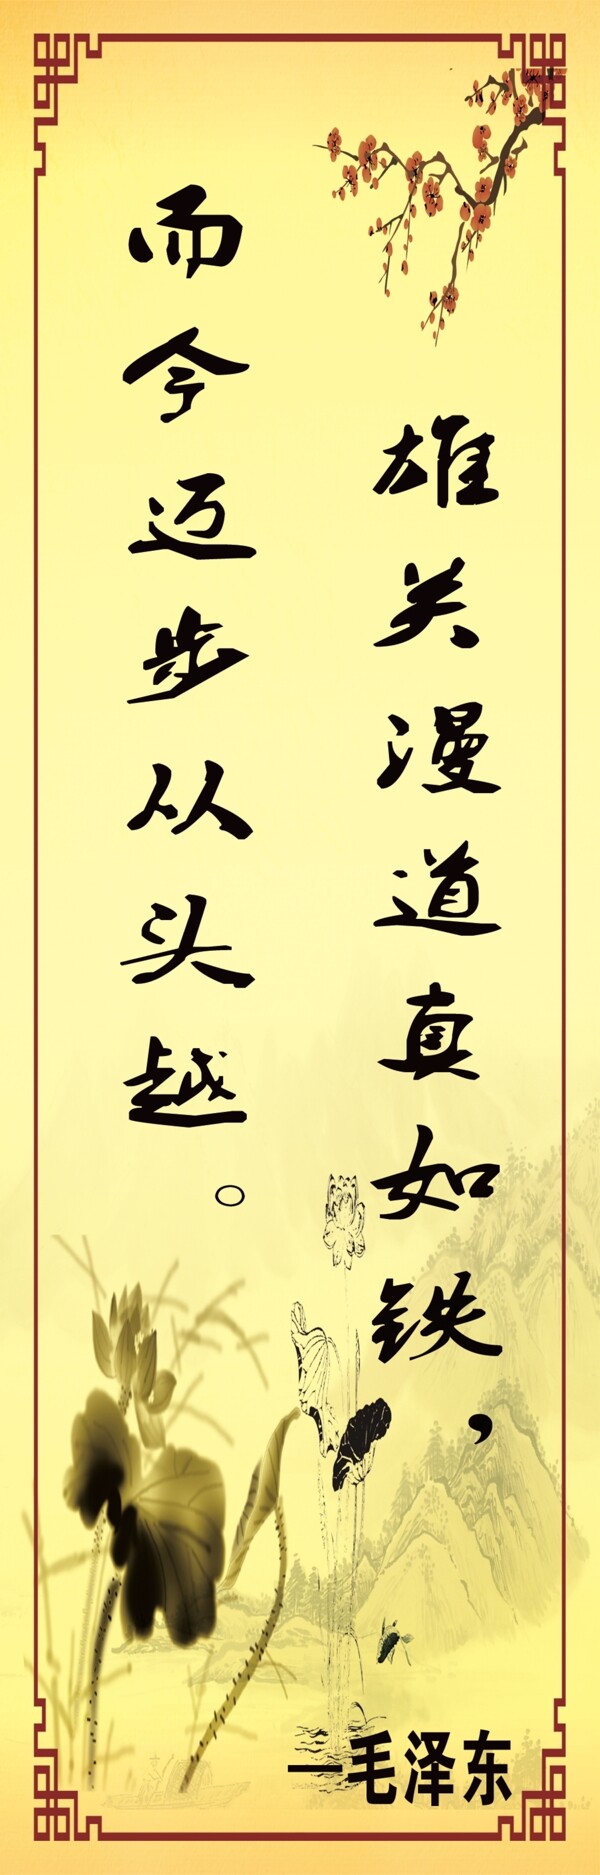 雄关漫道真如铁，
而今迈步从头越。
—毛泽东